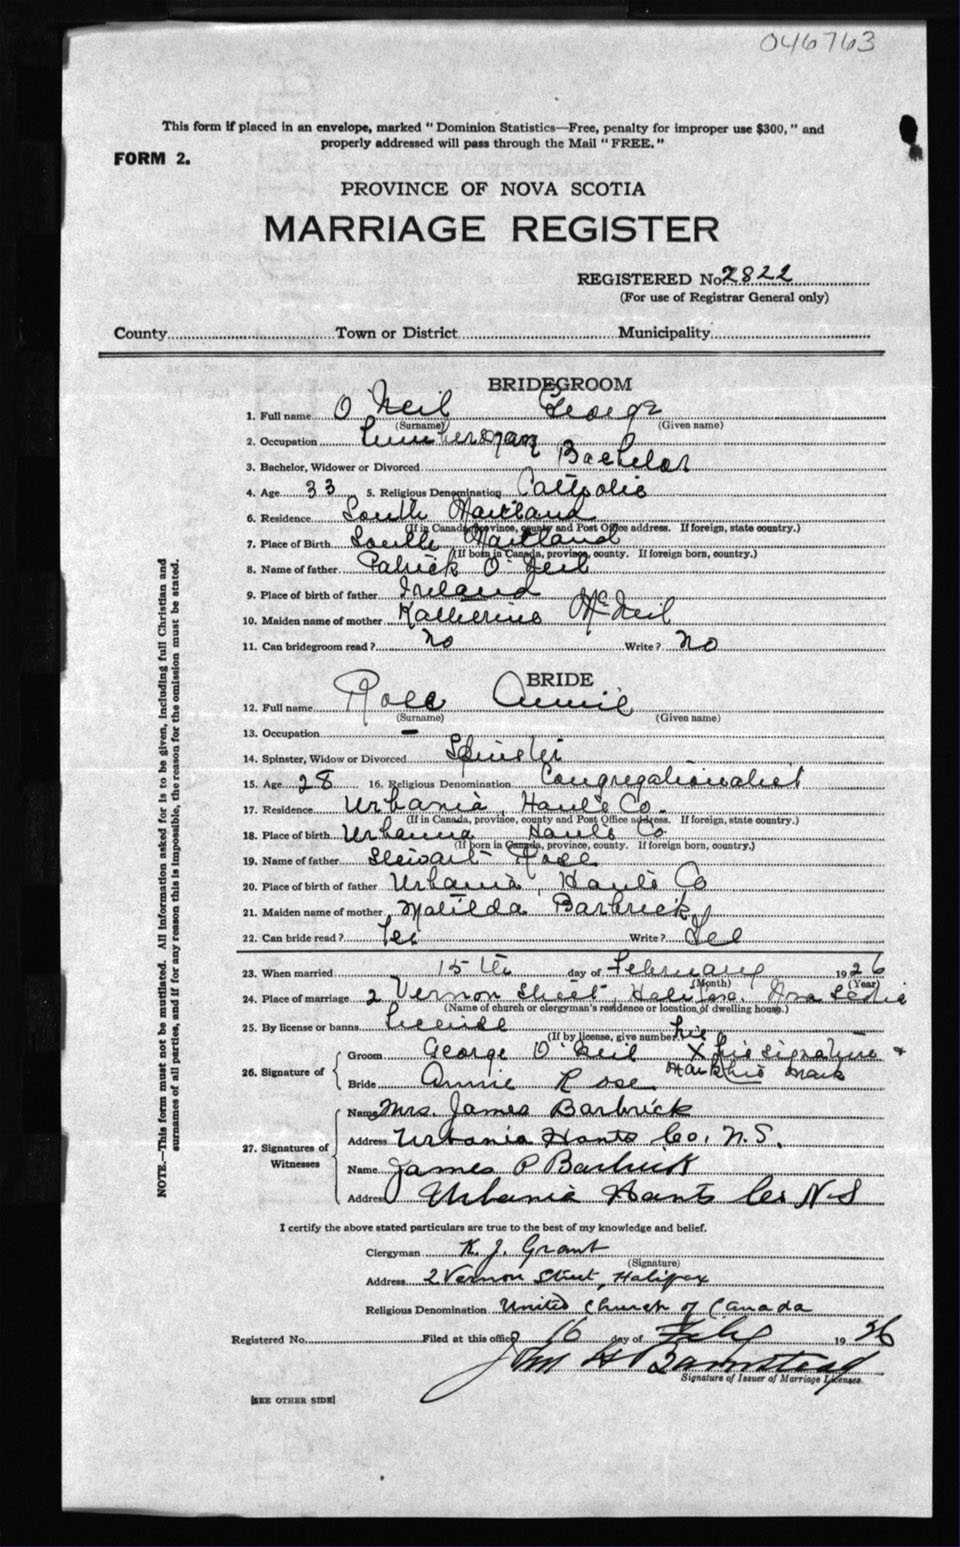 046763
This form if placed in an envelope, marked "Dominion Statistics—Free, penalty for improper use $300," and
properly addressed will pass through the Mail "FREE."
FORM 2.
PROVINCE OF NOVA SCOTIA
MARRIAGE REGISTER
REGISTERED No. 2822
(For use of Registrar General only)
County Town or District Municipality
BRIDEGROOM
1. Full name O'Neil George
(Surname) (Given name)
2. Occupation Lumberman
3. Bachelor, Widower or Divorced Bachelor
4. Age 33 5. Religious Denomination Catholic
6. Residence South Maitland
(If in Canada, province, county and Post Office address. If foreign, state country.)
7. Place of Birth South Maitland
(If born in Canada, province, county. If foreign born, country.)
8. Name of father Patrick O'Neil
9. Place of birth of father Ireland
10. Maiden name of mother Katherine McNeil
11. Can bridegroom read? no Write? no
BRIDE
12. Full name Rose Annie
(Surname) (Given name)
13. Occupation —
14. Spinster, Widow or Divorced Spinster
15. Age 28 16. Religious Denomination Congregationalist
17. Residence Urbania, Hants Co.
(If in Canada, province, county and Post Office address. If foreign, state country.)
18. Place of birth Urbania Hants Co
(If born in Canada, province, county. If foreign born, country.)
19. Name of father Stewart Rose
20. Place of birth of father Urbania, Hants Co
21. Maiden name of mother Matilda Barbrick
22. Can bride read? Yes Write? Yes
23. When married 15th day of February 1926
(Month) (Year)
24. Place of marriage 2 Vernon Street, Halifax, Nova Scotia
(Name of church or clergyman's residence or location of dwelling house.)
25. By license or banns License
(If by license, give number)
his
26. Signature of Groom George O'Neil X his signature &
mark his mark
Bride Annie Rose
27. Signatures of Witnesses
Name Mrs. James Barbrick
Address Urbania Hants Co. N.S.
Name James P Barbrick
Address Urbania Hants Co N-S
I certify the above stated particulars are true to the best of my knowledge and belief.
Clergyman K. J. Grant
(Signature)
Address 2 Vernon Street, Halifax
Religious Denomination United Church of Canada
Registered No. Filed at this office 16 day of Feby 1926
John H Barnstead
Signature of Issuer of Marriage Licenses.
[SEE OTHER SIDE]
NOTE.—This form must not be mutilated. All information asked for is to be given, including full Christian and
surnames of all parties, and if for any reason this is impossible, the reason for the omission must be stated.